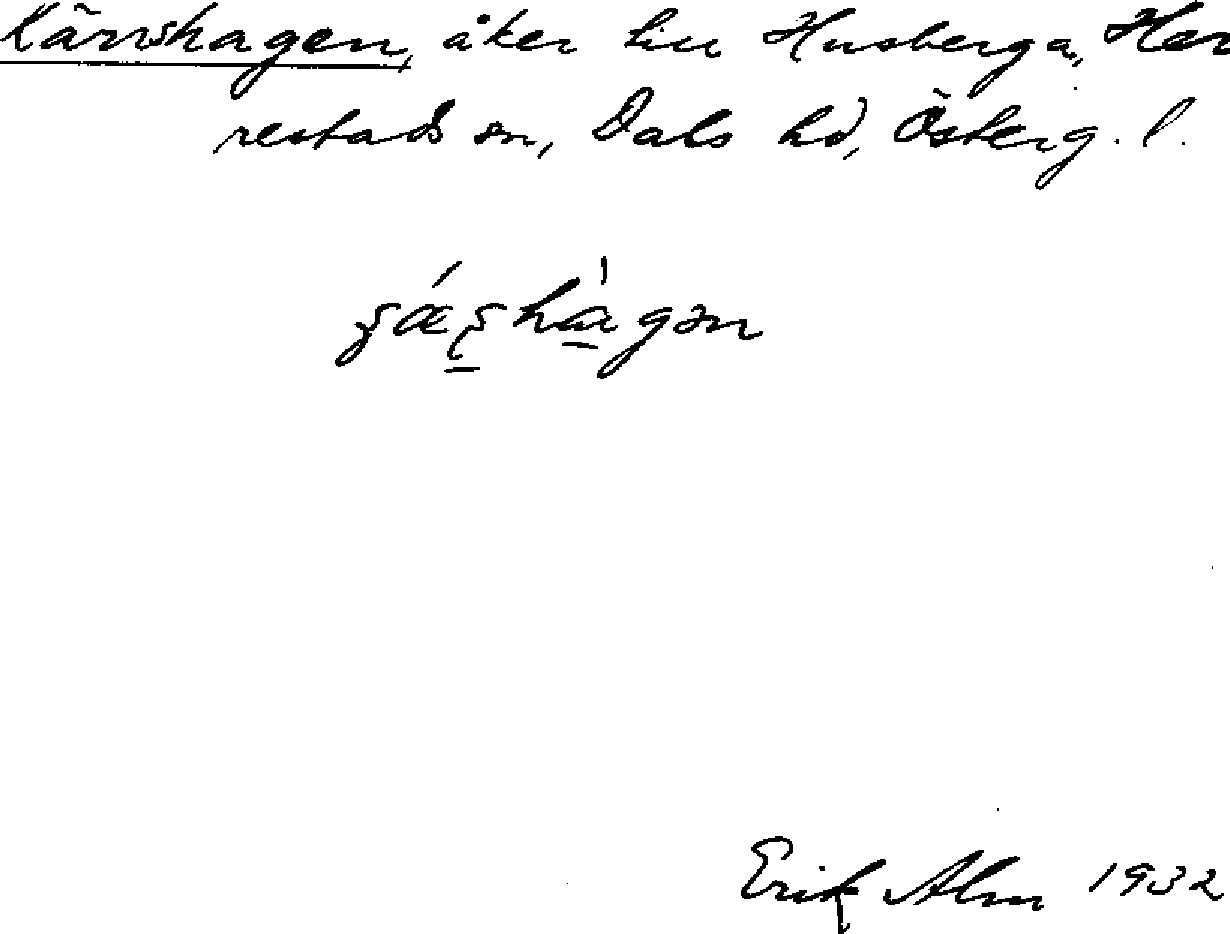 Kärrshagen, åker till Husberga, Her
restads sn, Dals hd, Österg. l.
Erik Alm 1932